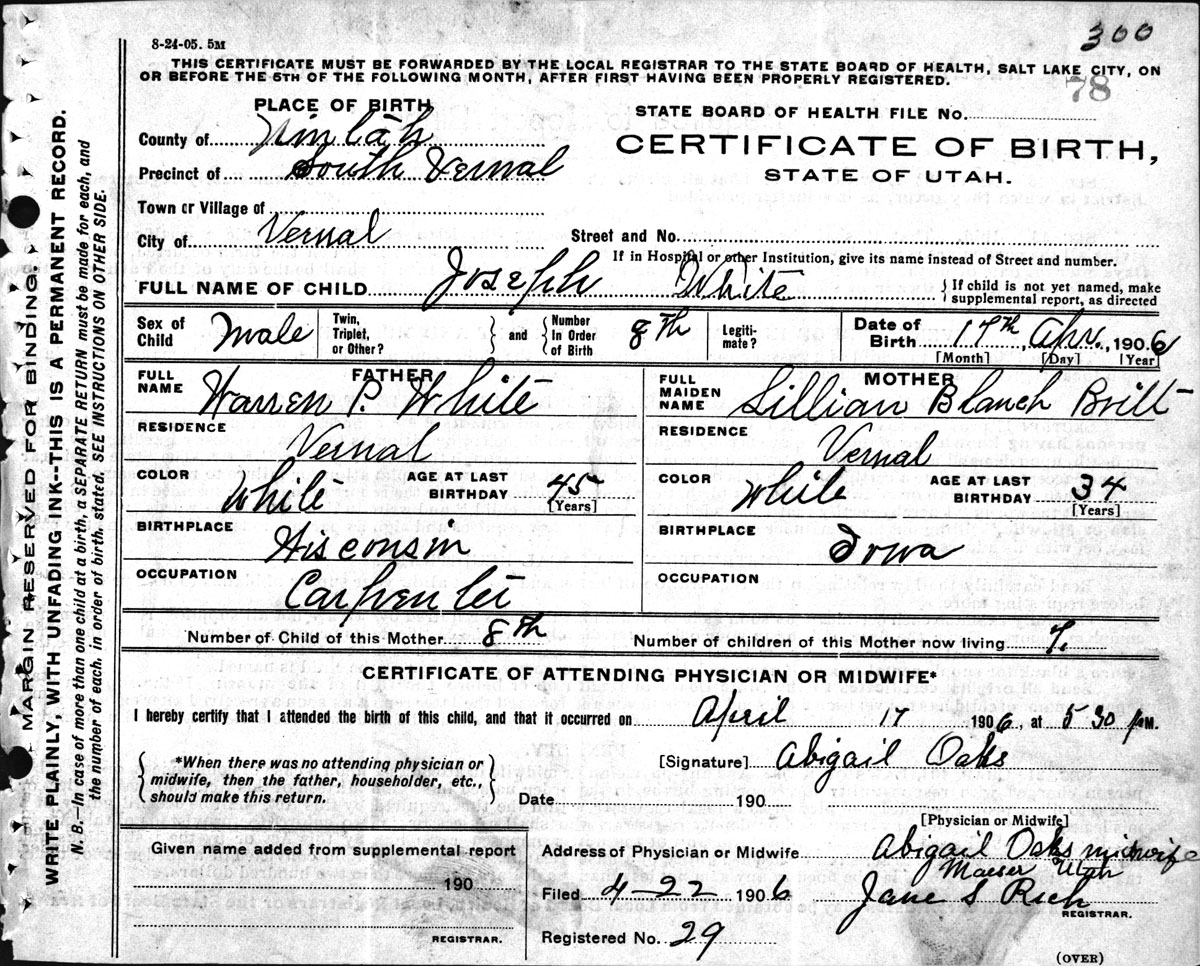 300
8-24-05. 5M
THIS CERTIFICATE MUST BE FORWARDED BY THE LOCAL REGISTRAR TO THE STATE BOARD OF HEALTH, SALT LAKE CITY, ON
OR BEFORE THE 5TH OF THE FOLLOWING MONTH, AFTER FIRST HAVING BEEN PROPERLY REGISTERED.
78
PLACE OF BIRTH
STATE BOARD OF HEALTH FILE No.
County of Uintah
CERTIFICATE OF BIRTH,
Precinct of South Vernal
STATE OF UTAH.
Town or Village of
City of Vernal
Street and No.
If in Hospital or other Institution, give its name instead of Street and number.
FULL NAME OF CHILD Joseph White { If child is not yet named, make
supplemental report, as directed
Sex of Child Male
Twin, Triplet, or Other? } and { Number In Order of Birth 8th
Legitimate?
Date of Birth 17th Apr., 1906
[Month] [Day] [Year]
FATHER
FULL NAME Warren P. White
MOTHER
FULL MAIDEN NAME Lillian Blanch Britt
RESIDENCE Vernal
RESIDENCE Vernal
COLOR White AGE AT LAST BIRTHDAY 45 [Years]
COLOR White AGE AT LAST BIRTHDAY 34 [Years]
BIRTHPLACE Wisconsin
BIRTHPLACE Iowa
OCCUPATION Carpenter
OCCUPATION
Number of Child of this Mother 8th Number of children of this Mother now living 7.
CERTIFICATE OF ATTENDING PHYSICIAN OR MIDWIFE*
I hereby certify that I attended the birth of this child, and that it occurred on April 17 1906, at 5 30 P M.
*When there was no attending physician or
midwife, then the father, householder, etc.,
should make this return.
[Signature] Abigail Oaks
Date 190
[Physician or Midwife]
Given name added from supplemental report
190
REGISTRAR.
Address of Physician or Midwife Abigail Oaks midwife
Maeser Utah
Filed 4-22 1906 Jane S Rich
REGISTRAR.
Registered No. 29
(OVER)
MARGIN RESERVED FOR BINDING.
WRITE PLAINLY, WITH UNFADING INK--THIS IS A PERMANENT RECORD.
N. B.—In case of more than one child at a birth, a SEPARATE RETURN must be made for each, and
the number of each, in order of birth, stated. SEE INSTRUCTIONS ON OTHER SIDE.